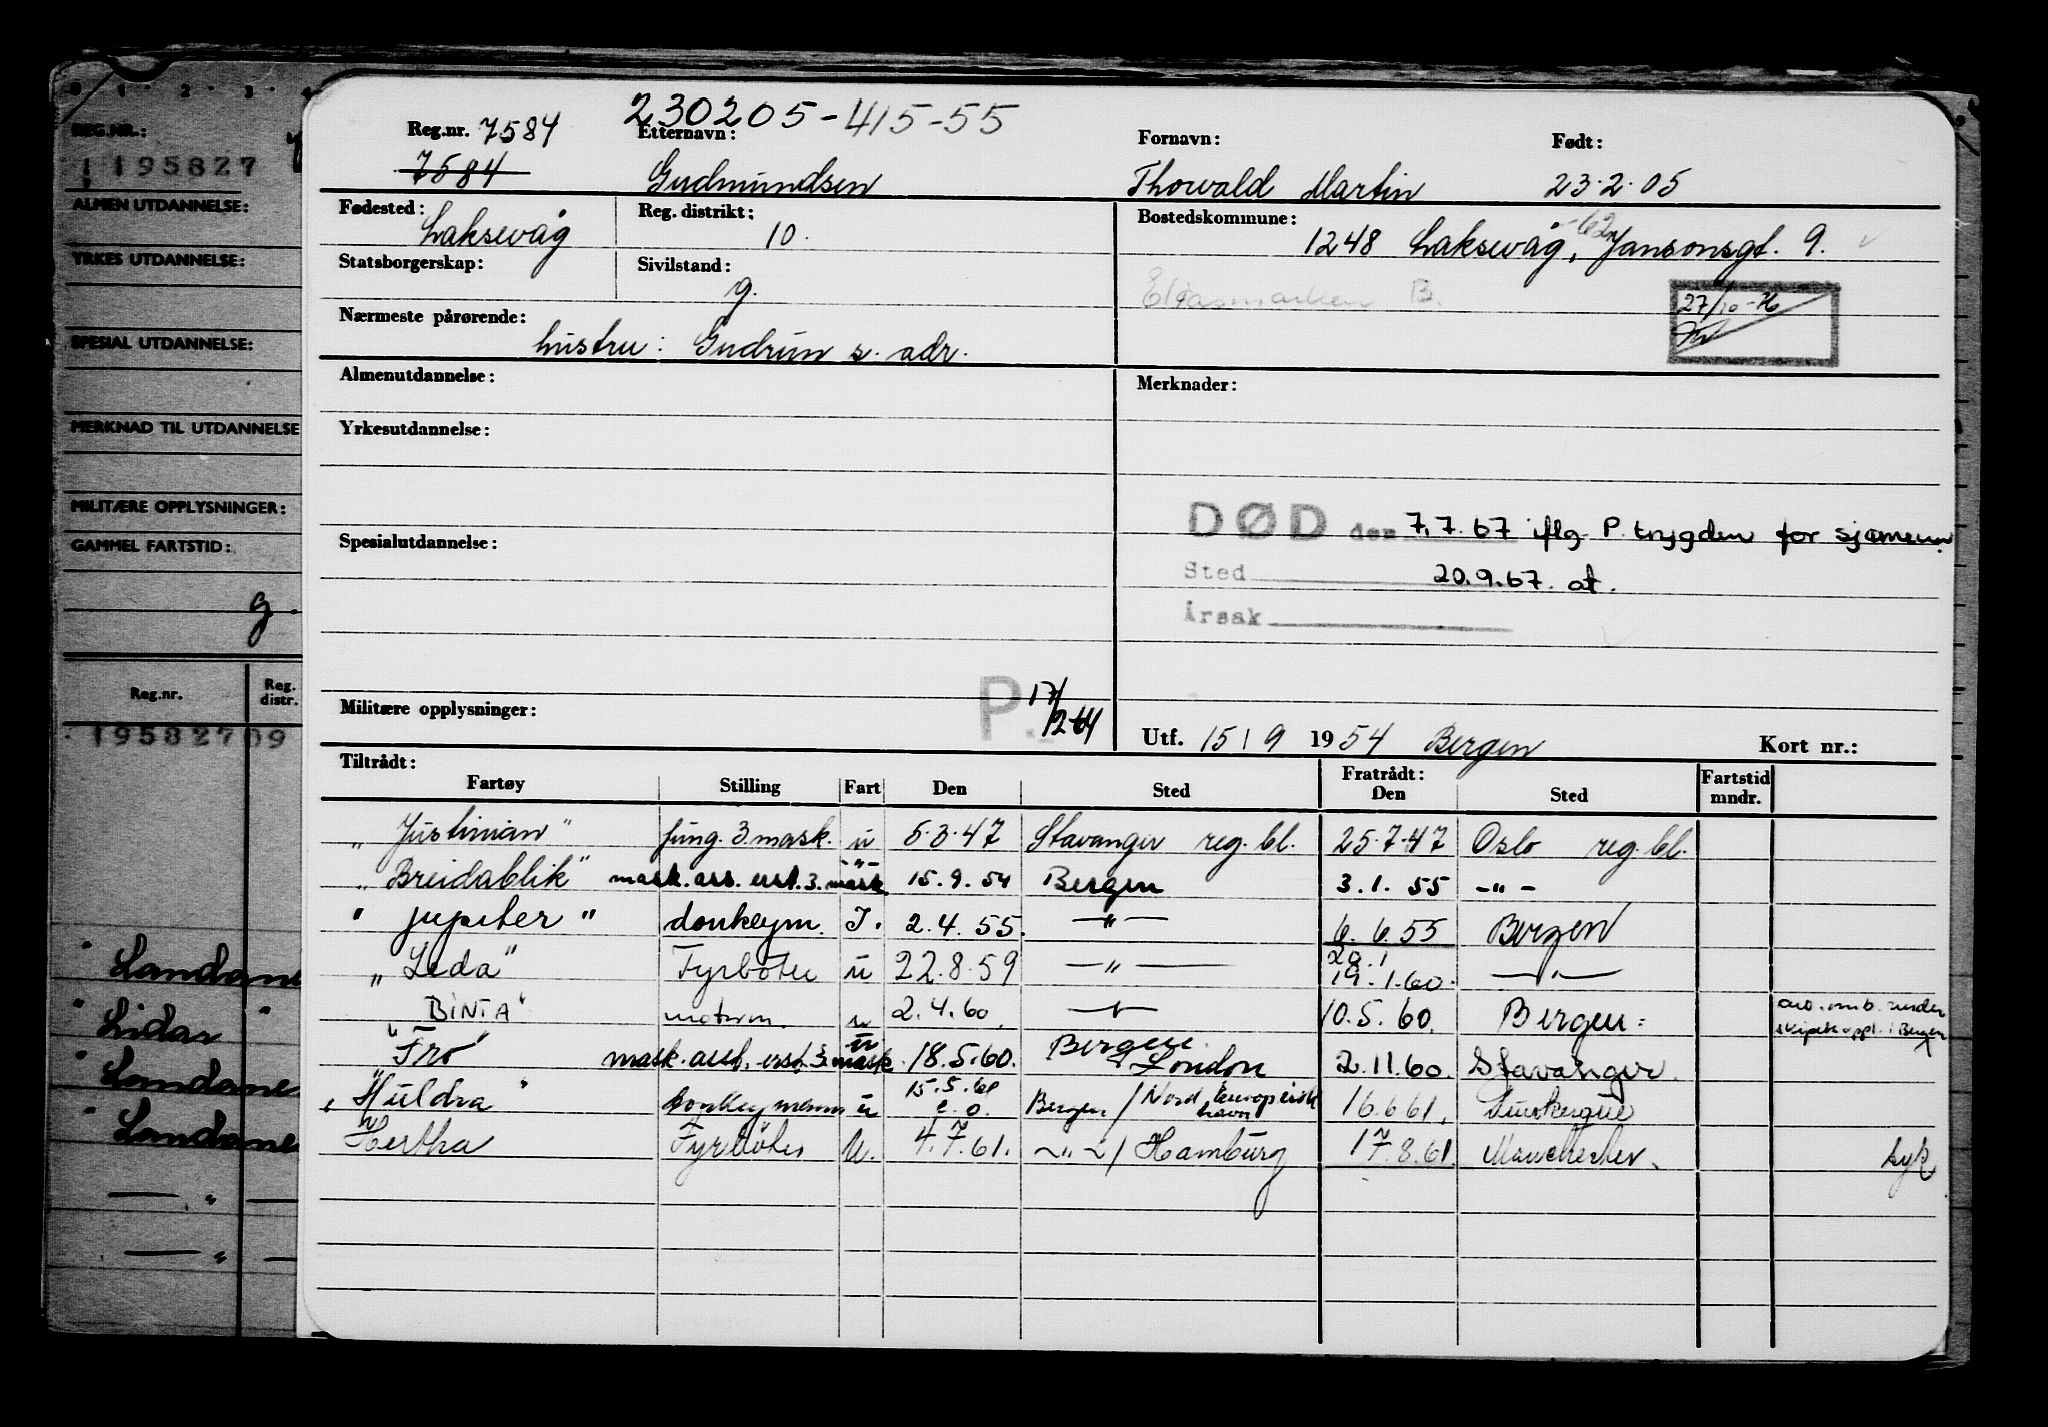 230205-415-55
Reg.nr. 7584 Etternavn: Fornavn: Født:
7584 Gudmundsen Thorvald Martin 23.2.05
Fødested: Reg. distrikt: Bostedskommune:
Laksevåg 10. 1248 Laksevåg, Jansonsgt. 9.
-62
Statsborgerskap: Sivilstand:
g. Eliasmarken B.
27/10-76
Nærmeste pårørende:
hustru: Gudrun s. adr.
Almenutdannelse: Merknader:
Yrkesutdannelse:
DØD den 7.7.67 iflg. P. trygden for sjømenn
Spesialutdannelse:
Sted 20.9.67. at.
Årsak
Militære opplysninger: P. 17/12-64
Utf. 15/9 1954 Bergen Kort nr.:
Tiltrådt: Fratrådt: Fartstid
Fartøy Stilling Fart Den Sted Den Sted mndr.
"Justinian" fung. 3. mask. u 5.3.47 Stavanger reg. bl. 25.7.47 Oslo reg. bl.
"Breidablik" mask. ass. erst. 3. mask. -"- 15.9.54 Bergen 3.1.55 -"-
"Jupiter" donkeym. I. 2.4.55. -"- 6.6.55 Bergen
20.1
"Leda" Fyrbøter u 22.8.59 -"- 19.1.60. -"-
"BINTA" motorm. u 2.4.60. -"- 10.5.60. Bergen: omb. under
skipets oppl. i Bergen
"Frò" mask. ass. erst. 3. mask u 18.5.60. Bergen
London 2.11.60. Stavanger.
"Huldra" donkeymann u 15.5.61 e.o. Bergen / Nord Europeisk havn 16.6.61. Dunkerque
Hertha Fyrbøter U. 4.7.61. -"- / Hamburg 17.8.61 Manchester. syk
REG.NR.:
1195827
ALMEN UTDANNELSE:
YRKES UTDANNELSE:
SPESIAL UTDANNELSE:
MERKNAD TIL UTDANNELSE
MILITÆRE OPPLYSNINGER:
GAMMEL FARTSTID:
g.
Reg.nr. Reg. distr.
19582709
"Landane
"Lidar"
"Landane
"Landane
-"- -
-"- -